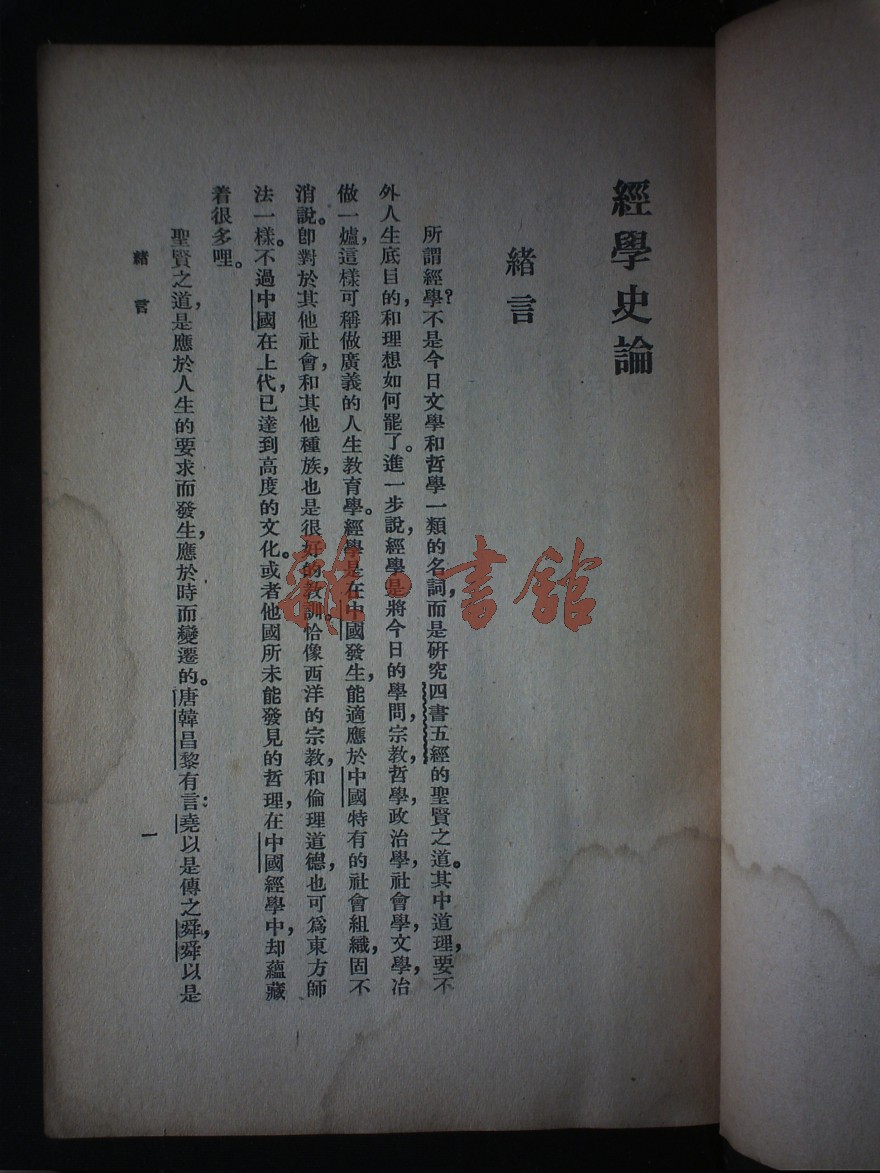 經學史論
緒言
所謂經學？不是今日文學和哲學一類的名詞，而是研究四書五經的聖賢之道。其中道理，要不
外人生底目的，和理想如何罷了。進一步說，經學是將今日的學問，宗教，哲學，政治學，社會學，文學，冶
做一爐，這樣可稱做廣義的人生教育學。經學是在中國發生，能適應於中國特有的社會組織，固不
消說。卽對於其他社會，和其他種族，也是很好的教訓。恰像西洋的宗教，和倫理道德，也可爲東方師
法一樣。不過中國在上代，已達到高度的文化。或者他國所未能發見的哲理，在中國經學中，却蘊藏
着很多哩。
聖賢之道，是應於人生的要求而發生，應於時而變遷的。唐韓昌黎有言：堯以是傳之舜，舜以是
緒言
一
雜·書館